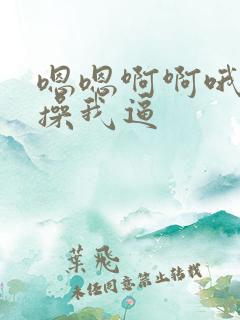 嗯嗯啊啊哦
操我逼
葉飛
未经同意禁止转载